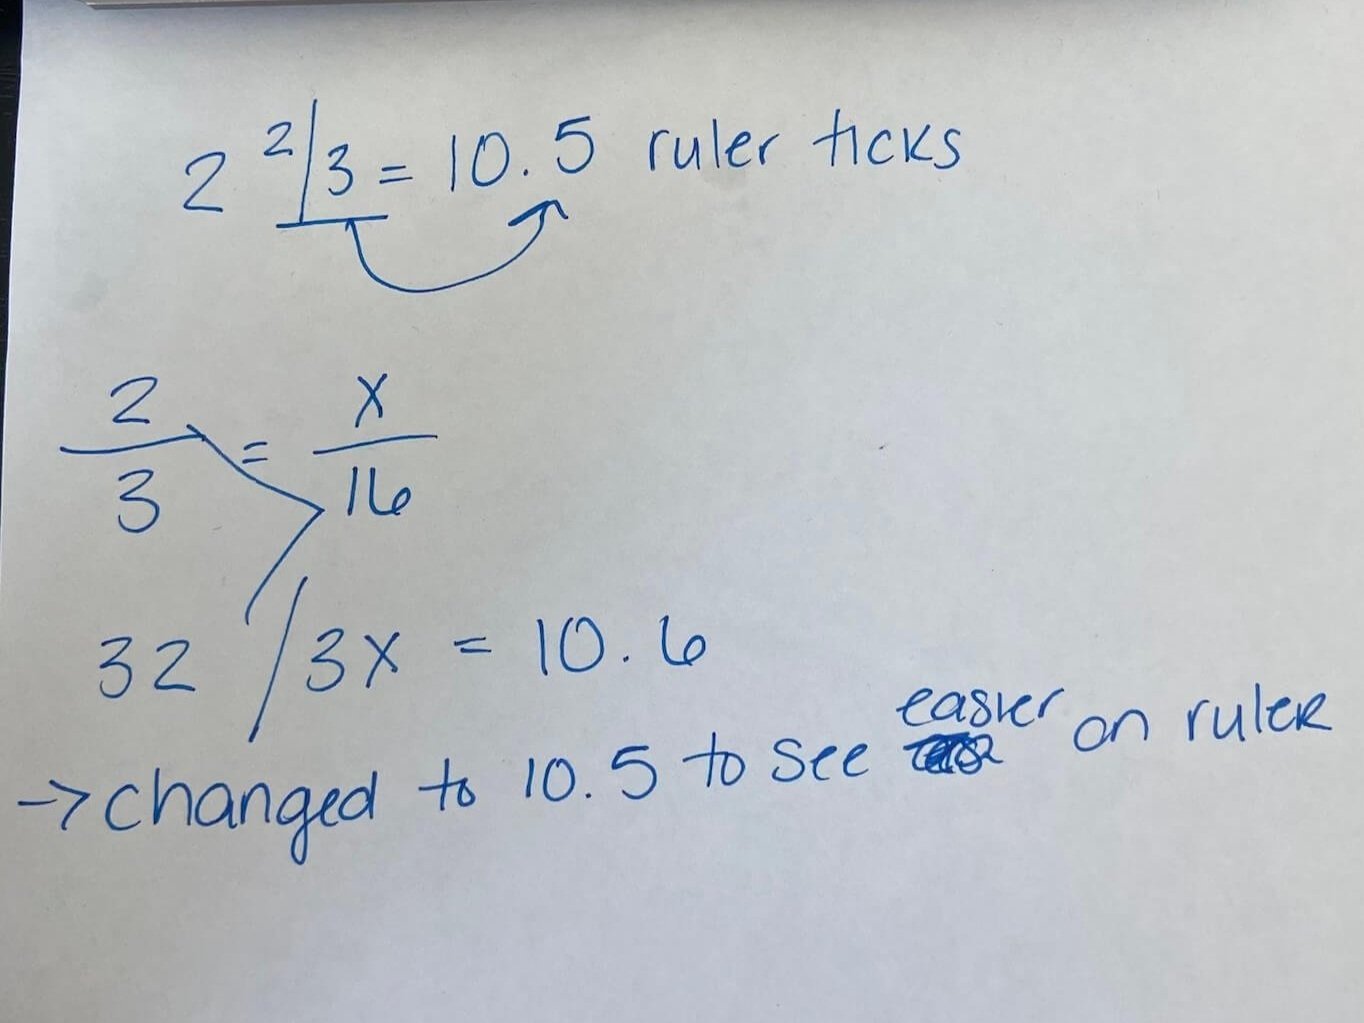 2 2/3 = 10.5 ruler ticks
2/3 = x/16
32 / 3x = 10.6
→ changed to 10.5 to see easier on ruler